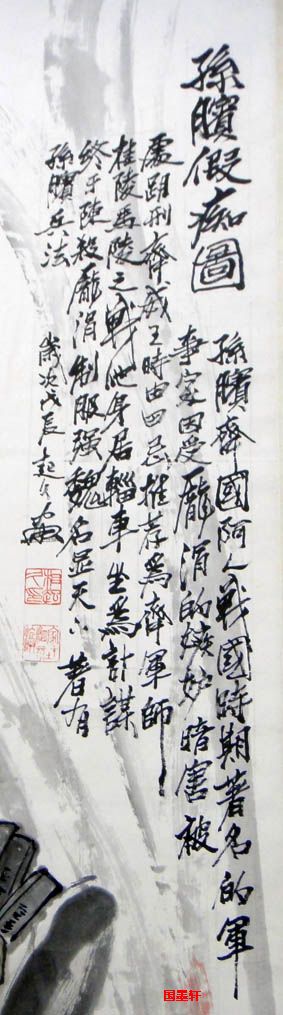 孫臏假痴圖
孫臏齊國阿人戰國時期著名的軍
事家因受龐涓的嫉妒暗害被
處刖刑齊威王時由田忌推荐爲齊軍師
桂陵馬陵之戰他身居輜車坐爲計謀
終于陣殺龐涓制服强魏名显天下著有
孫臏兵法
歲次戊辰起
国墨轩